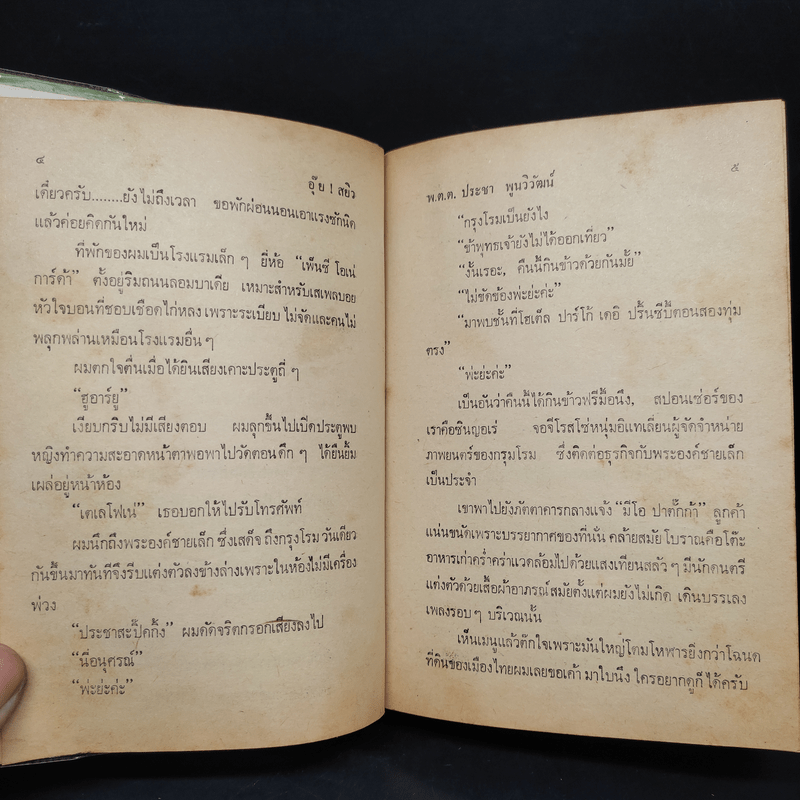 ๔
อุ๊ย ! สยิว
เดี๋ยวครับ........ยังไม่ถึงเวลา ขอพักผ่อนนอนเอาแรงซักนิด
แล้วค่อยคิดกันใหม่
ที่พักของผมเป็นโรงแรมเล็ก ๆ ยี่ห้อ “เพ็นซี โอเน่
การ์ด้า” ตั้งอยู่ริมถนนลอมบาเดีย เหมาะสำหรับเสเพลบอย
หัวใจบอนที่ชอบเชือดไก่หลง เพราะระเบียบ ไม่จัดและคนไม่
พลุกพล่านเหมือนโรงแรมอื่น ๆ
ผมตกใจตื่นเมื่อได้ยินเสียงเคาะประตูถี่ ๆ
“ฮูอาร์ยู”
เงียบกริบไม่มีเสียงตอบ ผมลุกขึ้นไปเปิดประตูพบ
หญิงทำความสะอาดหน้าตาพอพาไปวัดตอนดึก ๆ ได้ยืนยิ้ม
เผล่อยู่หน้าห้อง
“เตเลโฟเน่” เธอบอกให้ไปรับโทรศัพท์
ผมนึกถึงพระองค์ชายเล็ก ซึ่งเสด็จ ถึงกรุงโรม วันเดียว
กันขึ้นมาทันทีจึงรีบแต่งตัวลงข้างล่างเพราะในห้องไม่มีเครื่อง
พ่วง
“ประชาสะปี๊คกิ้ง” ผมดัดจริตกรอกเสียงลงไป
“นี่อนุศรณ์”
“พ่ะย่ะค่ะ”
๕
พ.ต.ต. ประชา พูนวิวัฒน์
“กรุงโรมเป็นยังไง
“ข้าพุทธเจ้ายังไม่ได้ออกเที่ยว”
“งั้นเรอะ, คืนนี้กินข้าวด้วยกันมั้ย”
“ไม่ขัดข้องพ่ะย่ะค่ะ”
“มาพบชั้นที่โฮเต็ล ปาร์โก้ เดอิ ปริ้นซีปี้ตอนสองทุ่ม
ตรง”
“พ่ะย่ะค่ะ”
เป็นอันว่าคืนนี้ได้กินข้าวฟรีมื้อนึง, สปอนเซ่อร์ของ
เราคือซินญอเร่ จอจีโรสโซ่หนุ่มอิแทเลี่ยนผู้จัดจำหน่าย
ภาพยนตร์ของกรุมโรม ซึ่งติดต่อธุรกิจกับพระองค์ชายเล็ก
เป็นประจำ
เขาพาไปยังภัตตาคารกลางแจ้ง “มีโอ ปาตั๊กก้า” ลูกค้า
แน่นขนัดเพราะบรรยากาศของที่นั่น คล้ายสมัย โบราณคือโต๊ะ
อาหารเก่าคร่ำคร่าแวดล้อมไปด้วยแสงเทียนสลัว ๆ มีนักดนตรี
แต่งตัวด้วยเสื้อผ้าอาภรณ์สมัยตั้งแต่ผมยังไม่เกิด เดินบรรเลง
เพลงรอบ ๆ บริเวณนั้น
เห็นเมนูแล้วตกใจเพราะมันใหญ่โตมโหฬารยิ่งกว่าโฉนด
ที่ดินของเมืองไทยผมเลยขอเค้า มาใบนึง ใครอยากดูก็ ได้ครับ